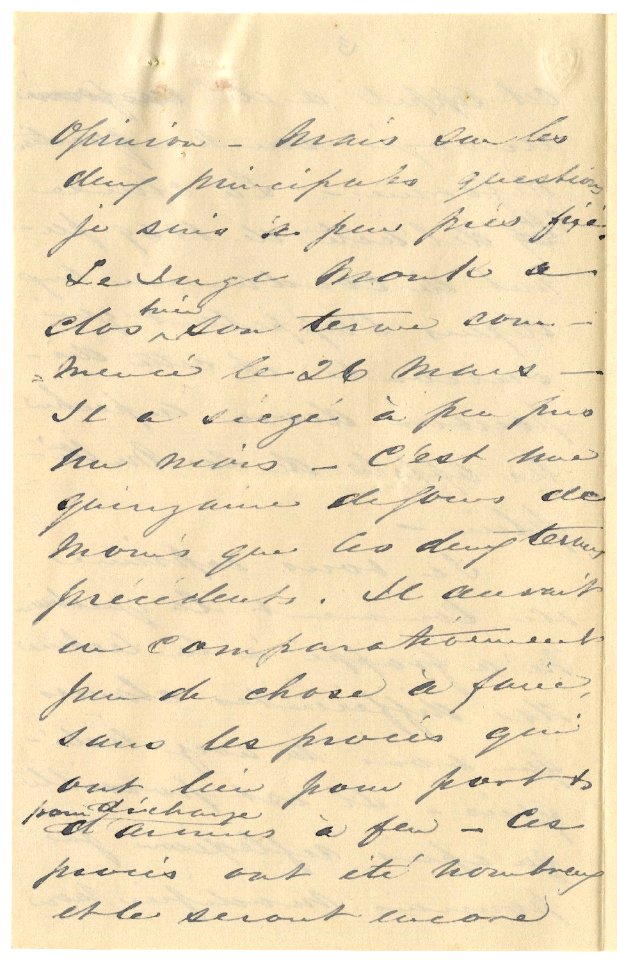 Opinion — Mais sur les
deux principales questions
je suis à peu près fixé.
Le Juge Monk a
clos hier son terme com-
mencé le 26 Mars —
Il a siégé à peu près
un mois — C'est une
quinzaine de jours de
moins que les deux termes
précédents. Il aurait
eu comparativement
peu de chose à faire,
sans les procès qui
ont lieu pour port &
pour décharge
d'armes à feu — Ces
procès ont été nombreux
et le seront encore